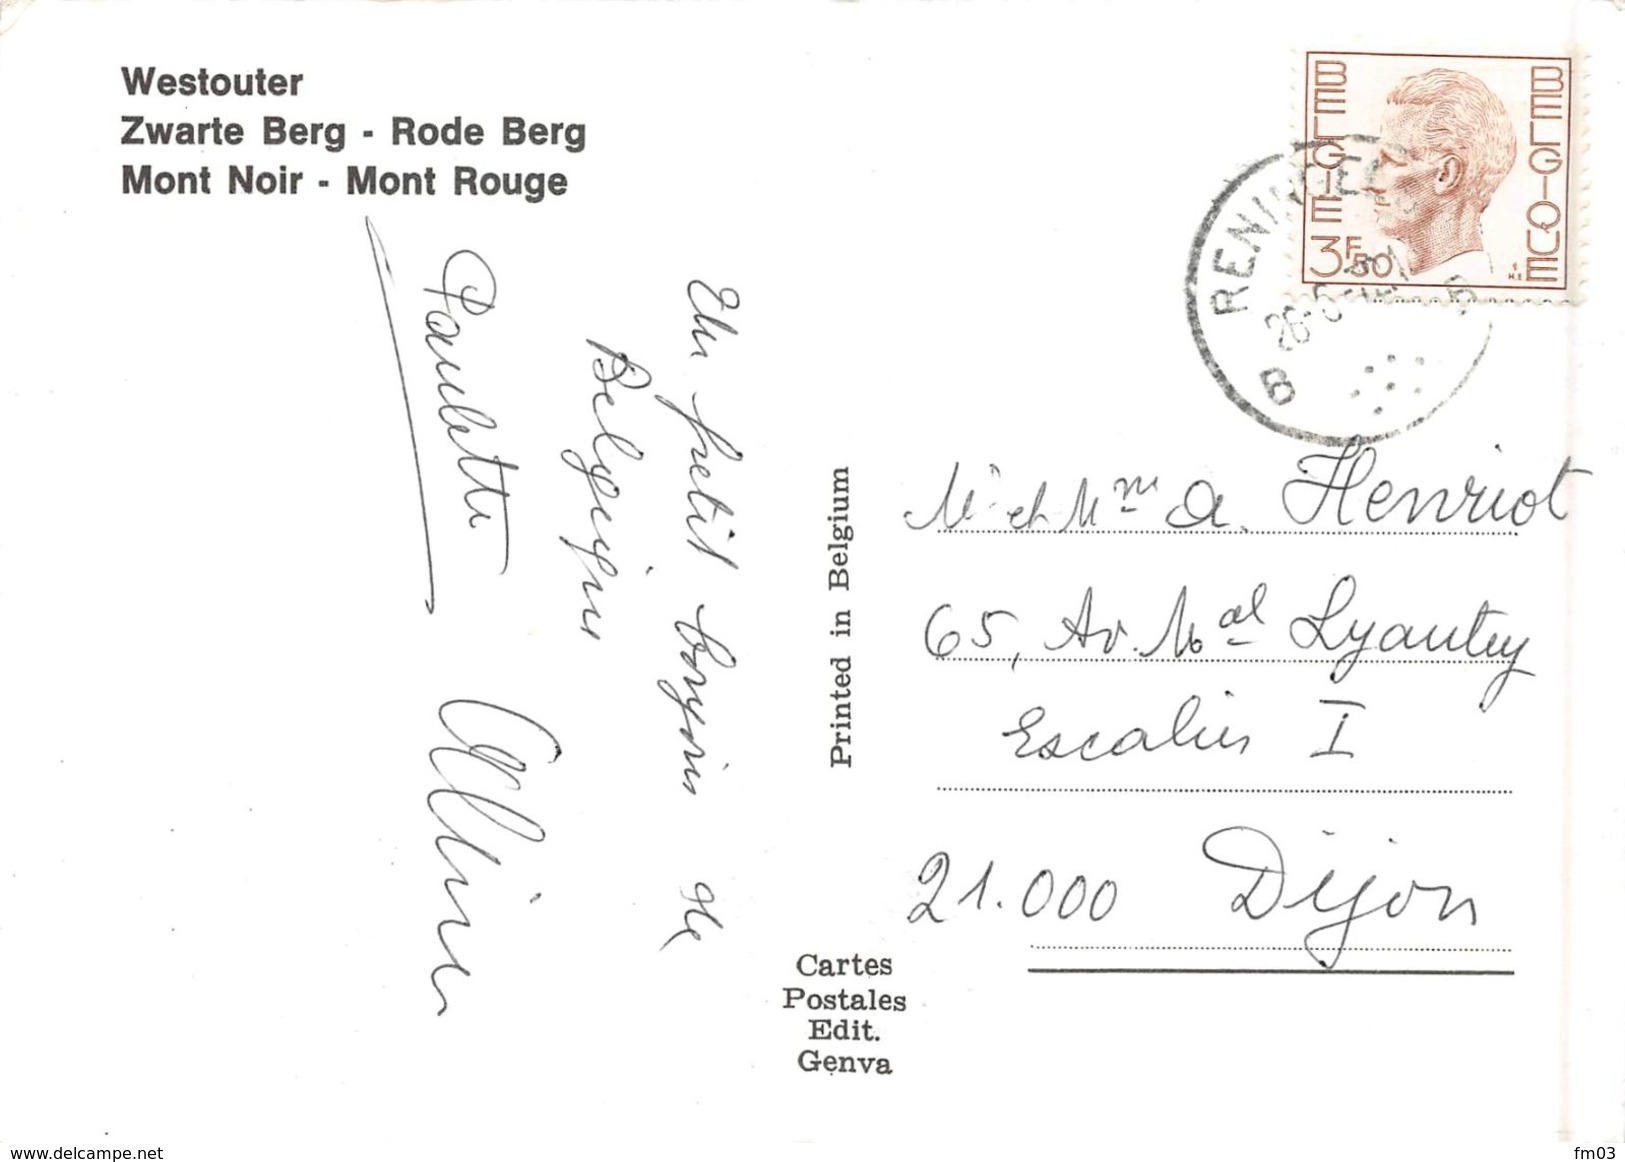 Westouter
Zwarte Berg - Rode Berg
Mont Noir - Mont Rouge
Un petit bonjour de
Belgique
Paulette
Printed in Belgium
Cartes
Postales
Edit.
Genva
BELGIE
BELGIQUE
3F50
RENINGEL
B
B
Mr et Mme A. Henriot
65, Av. Mal Lyautey
Escalier I
21.000 Dijon
www.delcampe.net
fm03